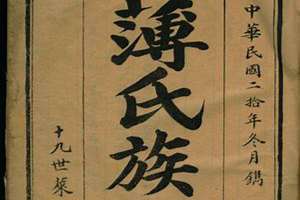 中華民國二拾年冬月鐫
薄氏族
十九世榮